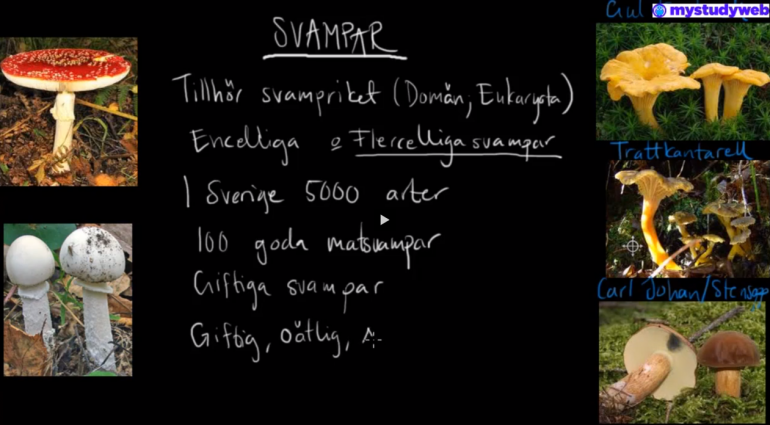 mystudyweb
SVAMPAR
Tillhör svampriket (Domän; Eukaryota)
Encelliga o Flercelliga svampar
I Sverige 5000 arter
100 goda matsvampar
Giftiga svampar
Giftig, oätlig,
Trattkantarell
Carl Johan/Stensopp